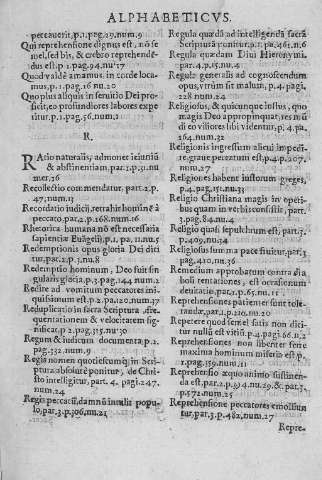 ALPHABETICVS.
peccauerit, p.1. pag. 29. num. 9
Qui reprehensione dignus est, nõ se
mel, sed bis, & crebro reprehendẽ-
dus est p. 2. pag. 94. nu. 17
Quod valdè amamus, in corde loca-
mus, p. 1. pag. 16. nu. 20
Quo plus aliquis in seruitio Dei pro-
ficit, eo profundiores labores expe
titur, p. 1. pag. 56. num. 1
R.
RAtio naturalis, admonet ieiuniũ
& abstinentiam, par. 2. p. 31. nu
mer. 26
Recollectio commendatur, part. 2. p.
47. num. 13
Recordatio iudicij, retrahit hominẽ à
peccato, par. 2. p. 168. num. 16
Rhetorica humana nõ est necessaria
sapientiæ Euãgelij, p. 1. pa. 11. nu. 5
Redemptionis opus gloria Dei dici
tur, par. 2. p. 3. nu. 8
Redemptio hominum, Deo fuit sin
gularis gloria, p. 3. pag. 144. num. 2
Redire ad vomitum peccatores ini-
quissimum est, p. 2. pa. 120. num. 37
Reduplicatio in sacra Scriptura, fre-
quentationem & velocitatem sig-
nificat, p. 2. pag. 315. nu. 30
Regum & iudicum documenta, p. 2.
pag. 532. num. 9
Regis nomen quotiescumq; in Scri-
ptura absolutè ponitur, de Chri-
sto intelligitur, part. 4. pagi. 247.
num. 24
Regis peccatũ, damnõ innulii popu-
lo, par. 3. p. 306. nu. 21
Regula quædã ad intelligendã sacrã
Scripturã ponitur, p. 1. pa. 461. n. 6
Regula quædam Diui Hieronymi.
par. 4. p. 15. nu. 4
Regula generalis ad cognoscendum
opus, vtrùm sit malum, p. 4. pagi.
228. num. 24
Religiosus, & quicunque iustus, quo
magis Deo appropinquat, res mũ
di eo viliores libi videntur, p. 4. pa.
264. num. 32
Religionis ingressum alicui impedi-
re, graue peccatum est, p. 4. p. 207.
num. 27
Religiosos habent iustorum greges,
p. 4. pag. 151. nu. 33
Religio Christiana magis in operi-
bus quàm in verbis consistit, part.
3. pag. 84. nu. 4
Religio quasi sepulchrum est, part. 3.
p. 409. nu. 34
Religiosus summa pace fruitur, part. 3
pag. 410. nu. 20
Remedium approbatum contra dia
boli tentationes, est occasionum
deuitatio, par. 2. p. 65. nu. 11
Reprehensiones patienter sunt tole-
randæ, par. 2. p. 110. nu. 26
Repetere quod semel satis non dici-
tur nullũ est vitiũ, p. 4. pagi. 66. n. 2
Reprehensiones non libenter ferre
maxima hominum miseria est, p.
1. pag. 159. num. 21
Reprehensio æquo animo sustinen-
da est, par. 2. p. 94. nu. 29. &. par. 3.
p. 572. num. 25
Reprehensione peccatores emolliun
tur, par. 3. p. 482. num. 27
Repre-